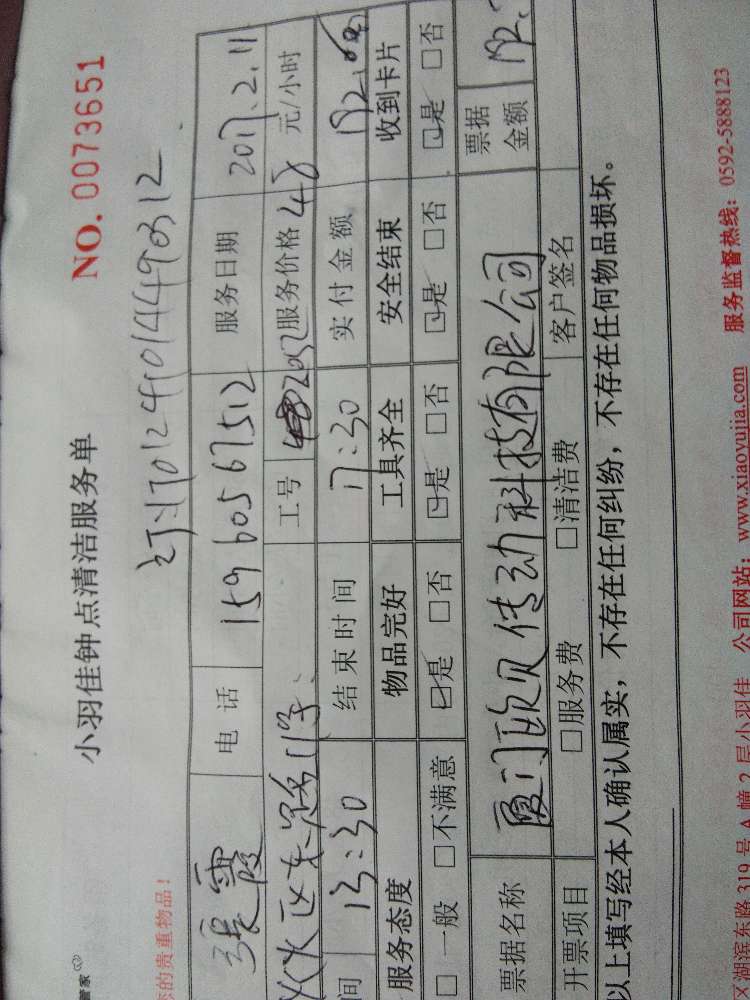 管家
小羽佳钟点清洁服务单 NO. 0073651
您的贵重物品！
订17012410144490312
张霞 电话 15960567512 服务日期 2017.2.11
工号 2052 服务价格 48 元/小时
间 13:30 结束时间 17:30 实付金额 192.00
服务态度 物品完好 工具齐全 安全结束 收到卡片
□一般 □不满意 □是 □否 □是 □否 □是 □否 □是 □否
票据名称 厦门欧贝传动科技有限公司 票据金额 192.
开票项目 □服务费 □清洁费 客户签名
以上填写经本人确认属实，不存在任何纠纷，不存在任何物品损坏。
区湖滨东路 319 号 A 幢 2 层小羽佳 公司网站：www.xiaoyujia.com 服务监督热线：0592-5888123